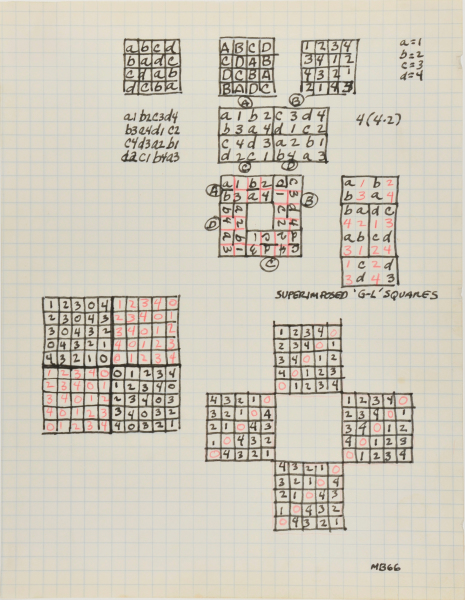 a b c d
b a d c
c d a b
d c b a
A B C D
C D A B
D C B A
B A D C
1 2 3 4
3 4 1 2
4 3 2 1
2 1 4 3
a=1
b=2
c=3
d=4
A B
a1b2c3d4
b3a4d1c2
c4d3a2b1
d2c1b4a3
a 1 b 2 c 3 d 4
b 3 a 4 d 1 c 2
c 4 d 3 a 2 b 1
d 2 c 1 b 4 a 3
4(4·2)
C D
A a 1 b 2
b 3 a 4 B
D
C
a 1 b 2
b 3 a 4
b a d c
4 2 1 3
a b c d
3 1 2 4
1 c 2 d
3 d 4 3
SUPERIMPOSED 'G-L' SQUARES
1 2 3 0 4 1 2 3 4 0
2 3 0 4 3 2 3 4 0 1
3 0 4 3 2 3 4 0 1 2
0 4 3 2 1 4 0 1 2 3
4 3 2 1 0 0 1 2 3 4
1 2 3 4 0 0 1 2 3 4
2 3 4 0 1 1 2 3 4 0
3 4 0 1 2 2 3 4 0 3
4 0 2 3 3 4 0 3 2
0 1 2 3 4 4 0 3 2 1
1 2 3 4 0
2 3 4 0 1
3 4 0 1 2
4 0 1 2 3
0 1 2 3 4
4 3 2 1 0
3 2 1 0 4
2 1 0 4 3
1 0 4 3 2
0 4 3 2 1
1 2 3 4 0
2 3 4 0 1
3 4 0 1 2
4 0 1 2 3
0 1 2 3 4
4 3 2 1 0
3 2 1 0 4
2 1 0 4 3
1 0 4 3 2
0 4 3 2 1
MB66